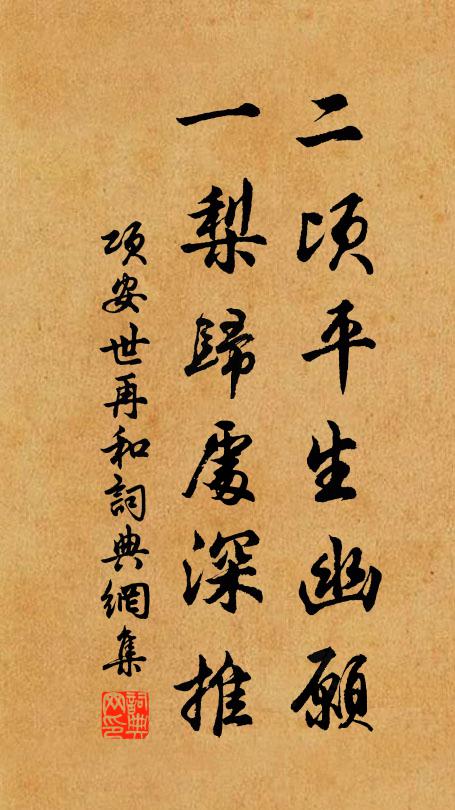 二頃平生幽願
一梨歸處深推
項安世再和詞典網集
詞典網印